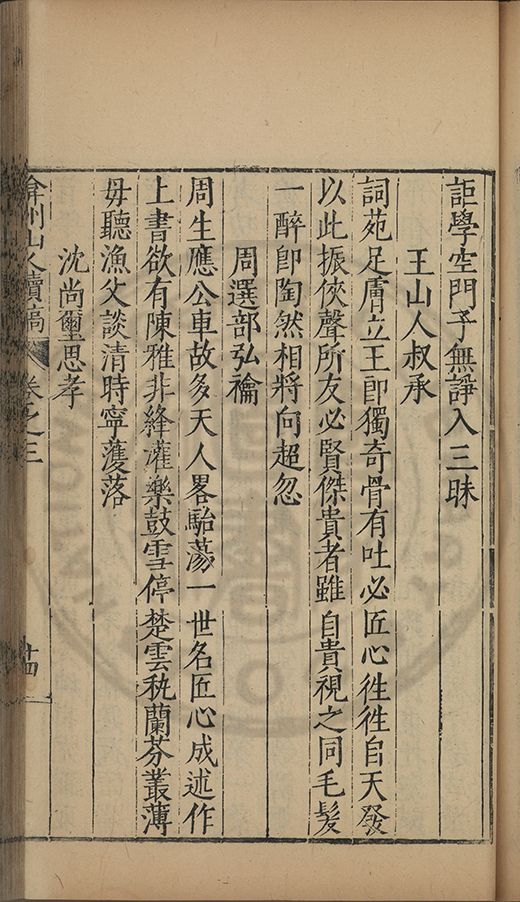 詎學空門予無諍入三昧
王山人叔承
詞苑足膚立王郎獨奇骨有吐必匠心徃徃自天發
以此振俠聲所友必賢傑貴者雖自貴視之同毛髮
一醉即陶然相將向超忽
周選部弘禴
周生應公車故多天人畧駘蕩一世名匠心成述作
上書欲有陳雅非絳灌樂鼓雪停楚雲秇蘭芬叢薄
毋聽漁父談清時寧濩落
沈尚璽思孝
弇州山人續稿 卷之三 十四